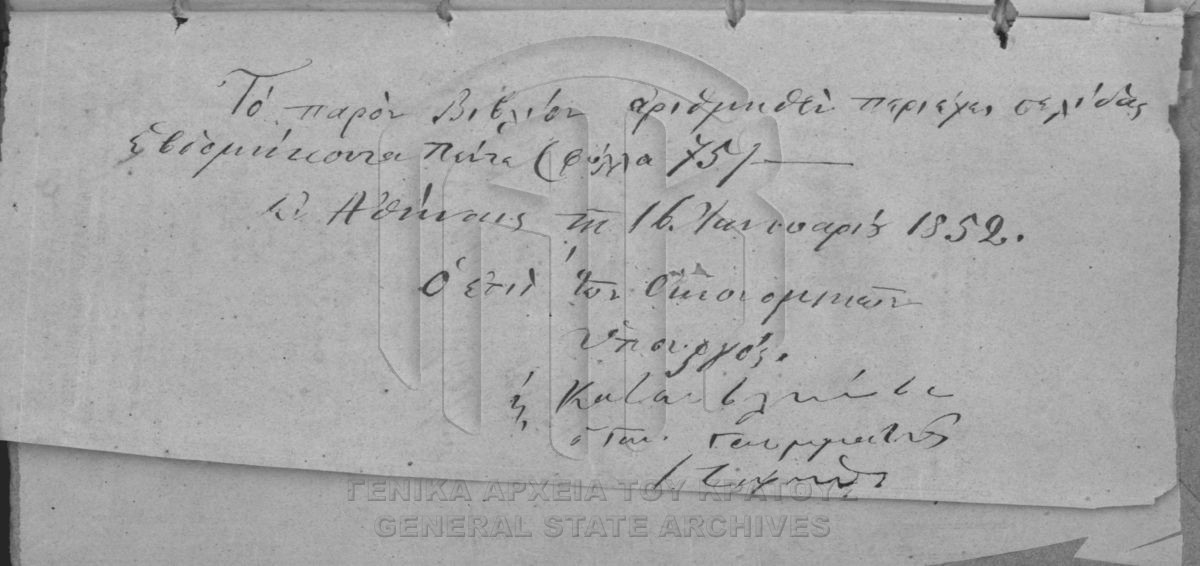 Τό παρὸν Βιβλίον ἀριθμηθὲν περιέχει σελίδας
ἑβδομήκοντα πέντε (φύλλα 75)
Ἐν Ἀθήναις τῇ 16. Ἰανουαρίου 1852.
Ὁ ἐπὶ τῶν Οἰκονομικῶν
Ὑπουργός.
ὁ Γεν. Γραμματεὺς
ΓΕΝΙΚΑ ΑΡΧΕΙΑ ΤΟΥ ΚΡΑΤΟΥΣ
GENERAL STATE ARCHIVES